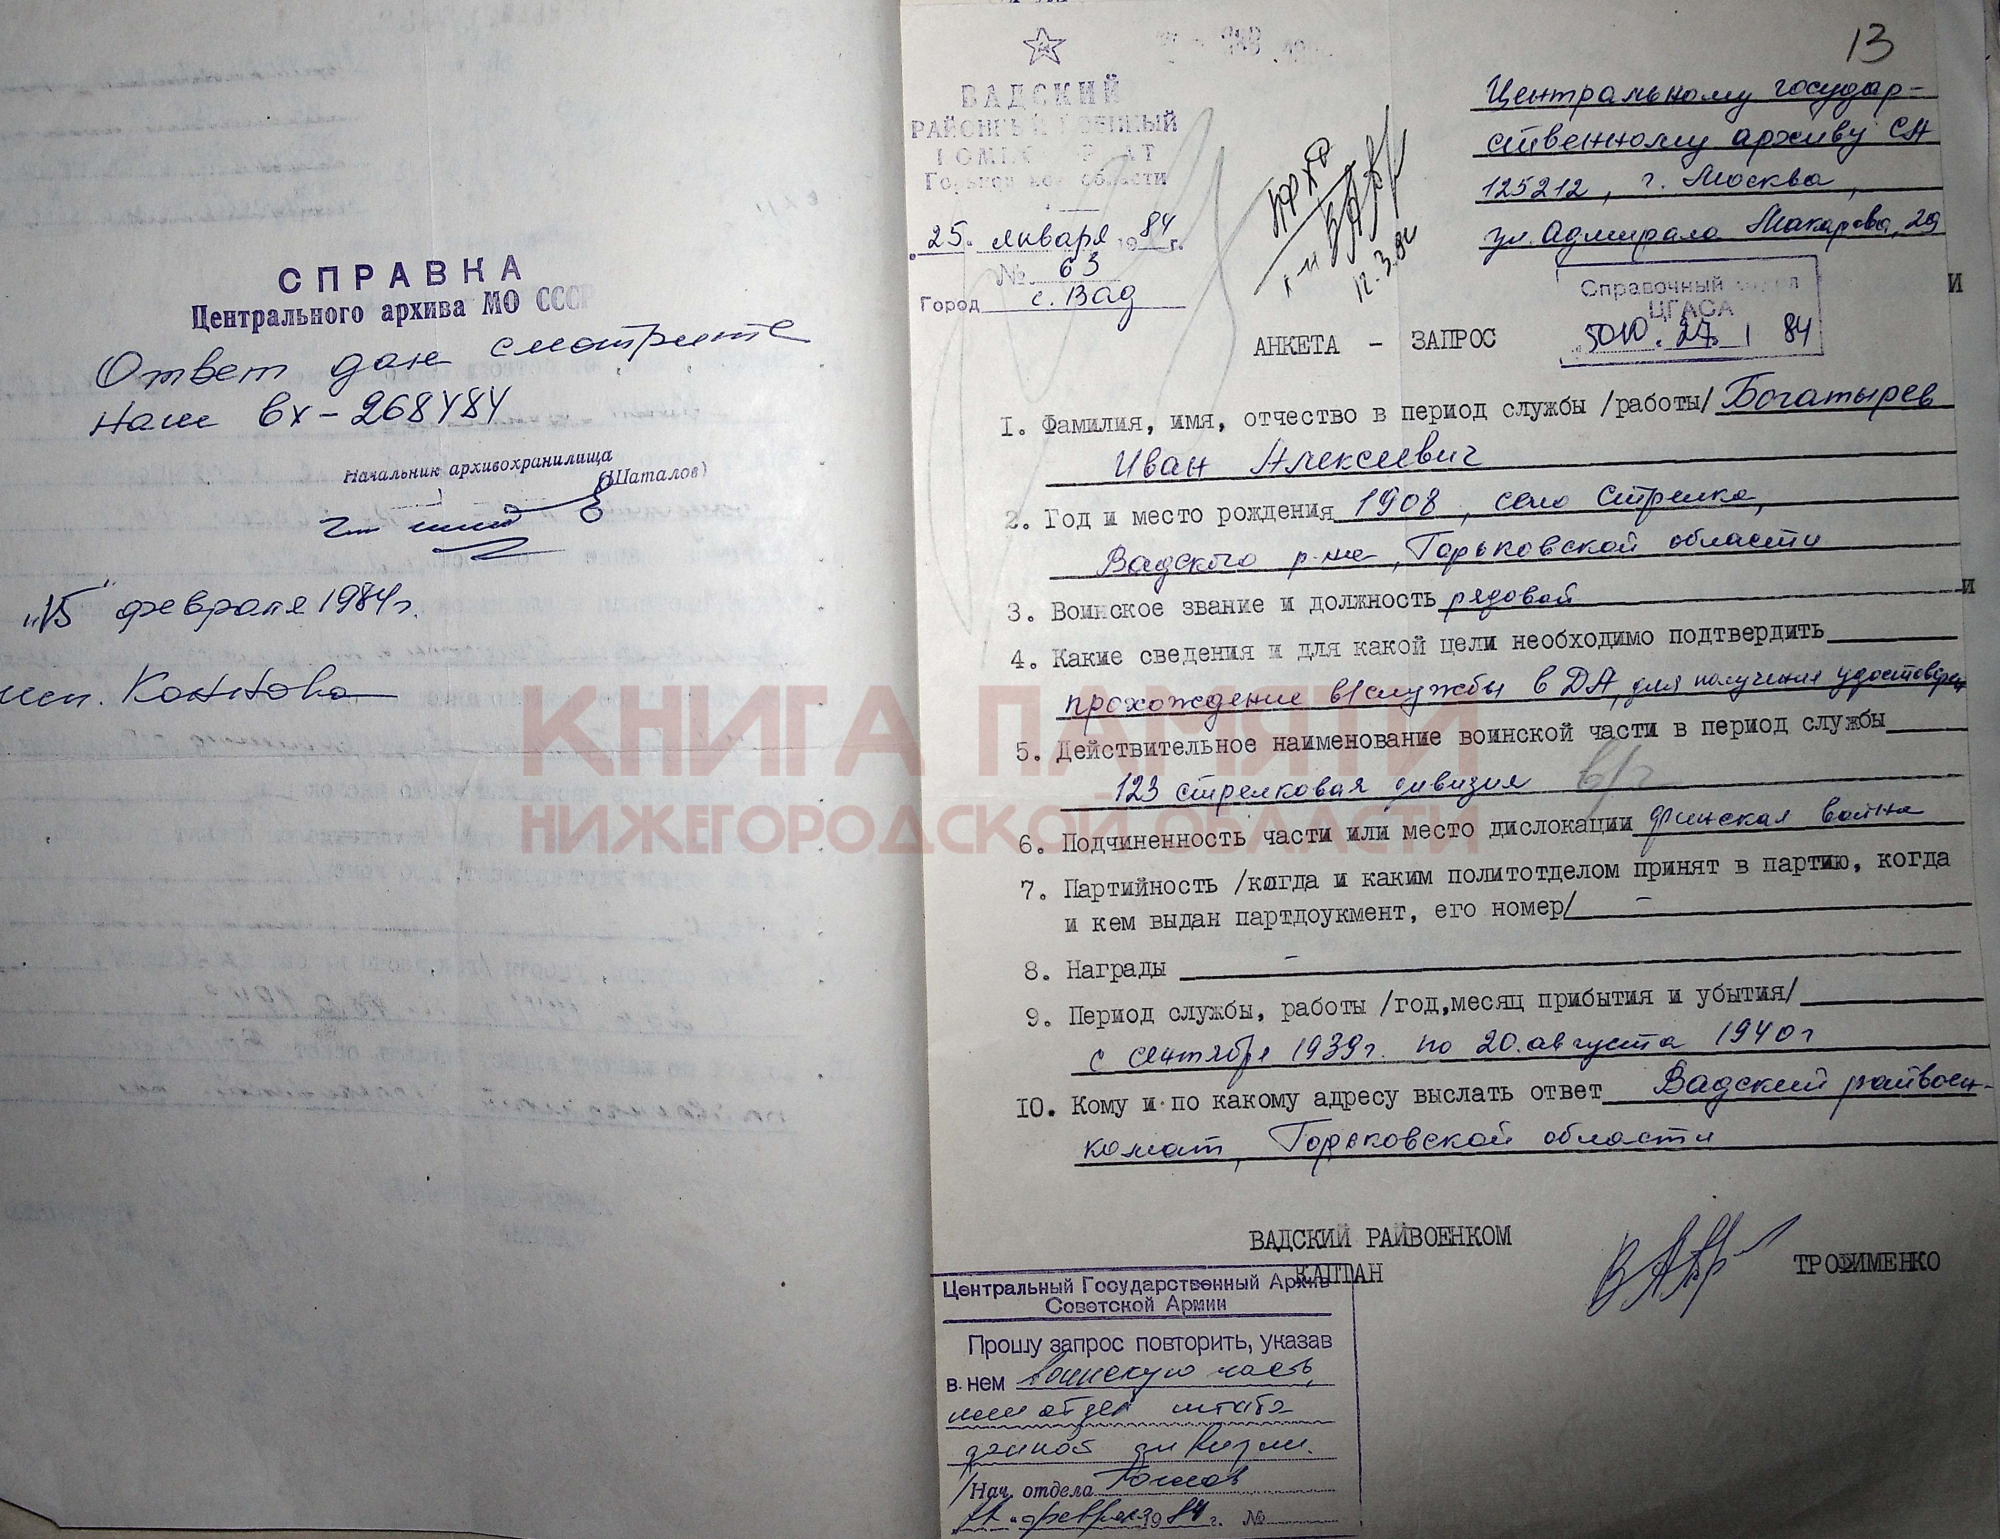 СПРАВКА
Центрального архива МО СССР
Ответ дан смотрите
наш вх-268484
Начальник архивохранилища
(Шаталов)
"15" февраля 1984г.
исп.
КНИГА ПАМЯТИ
НИЖЕГОРОДСКОЙ ОБЛАСТИ
13
ВАДСКИЙ
РАЙОННЫЙ ВОЕННЫЙ
КОМИССАРИАТ
Горьковской области
25. января 1984 г.
№ 63
Город с. Вад
12.3.84
Центральному государ-
ственному архиву СА
125212, г. Москва,
ул. Адмирала Макарова, 29
Справочный отдел
ЦГАСА
5010. 27. 1 84
И
АНКЕТА - ЗАПРОС
I. Фамилия, имя, отчество в период службы /работы/ Богатырев
Иван Алексеевич
2. Год и место рождения 1908, село Стрелка,
Вадского р-на, Горьковской области
3. Воинское звание и должность рядовой
и
4. Какие сведения и для какой цели необходимо подтвердить
прохождение в/службы в ДА, для получения удостоверен
5. Действительное наименование воинской части в период службы
123 стрелковая дивизия в/ч
6. Подчиненность части или место дислокации финская война
7. Партийность /когда и каким политотделом принят в партию, когда
и кем выдан партдоукмент, его номер/ -
8. Награды -
9. Период службы, работы /год,месяц прибытия и убытия/
с сентября 1939г. по 20.августа 1940г
10. Кому и по какому адресу выслать ответ Вадский райвоен-
комат, Горьковской области
ВАДСКИЙ РАЙВОЕНКОМ
КАПИТАН
ТРОФИМЕНКО
Центральный Государственный Архив
Советской Армии
Прошу запрос повторить, указав
в нем воинскую часть,
или отдел штаба
данной дивизии.
/Нач. отдела
февраля 1984 г. №